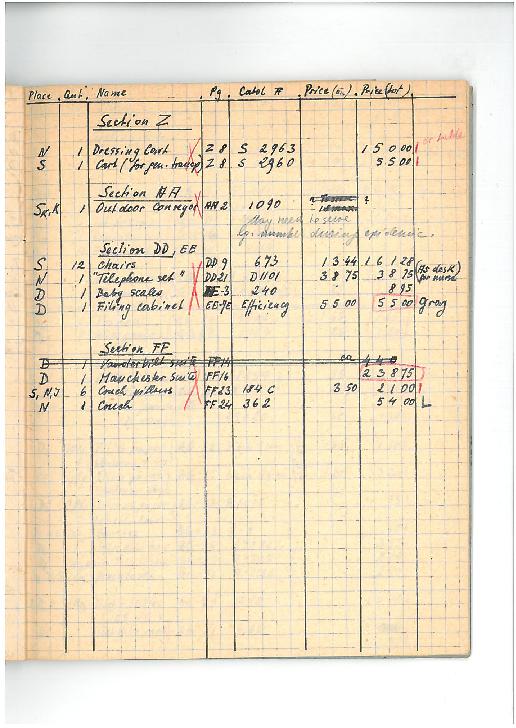 Place . Qut. Name Pg. Catal # Price (un.) Price (tot.)
Section Z
or table
N 1 Dressing Cart Z 8 S 2963 15 0 00
S 1 Cart ("for gen. transp) Z 8 S 2960 55 00
Section AA
1 Outdoor Conveyor AA 2 1090 ?
May need to serve
number during epidemic.
Section DD, EE
S 12 Chairs DD 9 673 13 44 161 28
N 1 "Telephone set" DD21 D1101 38 75 38 75 (As desk for nurse
D 1 Baby scales EE-3 240 8 95
D 1 Filing cabinet EE-7E Efficiency 55 00 55 00 gray
Section FF
D 1 Vanderbilt suite FF14 440
D 1 Manchester suite FF16 238 75
S, N, J 6 Couch pillows FF23 184 C 3 50 21 00
N 1 Couch FF24 362 54 00 L